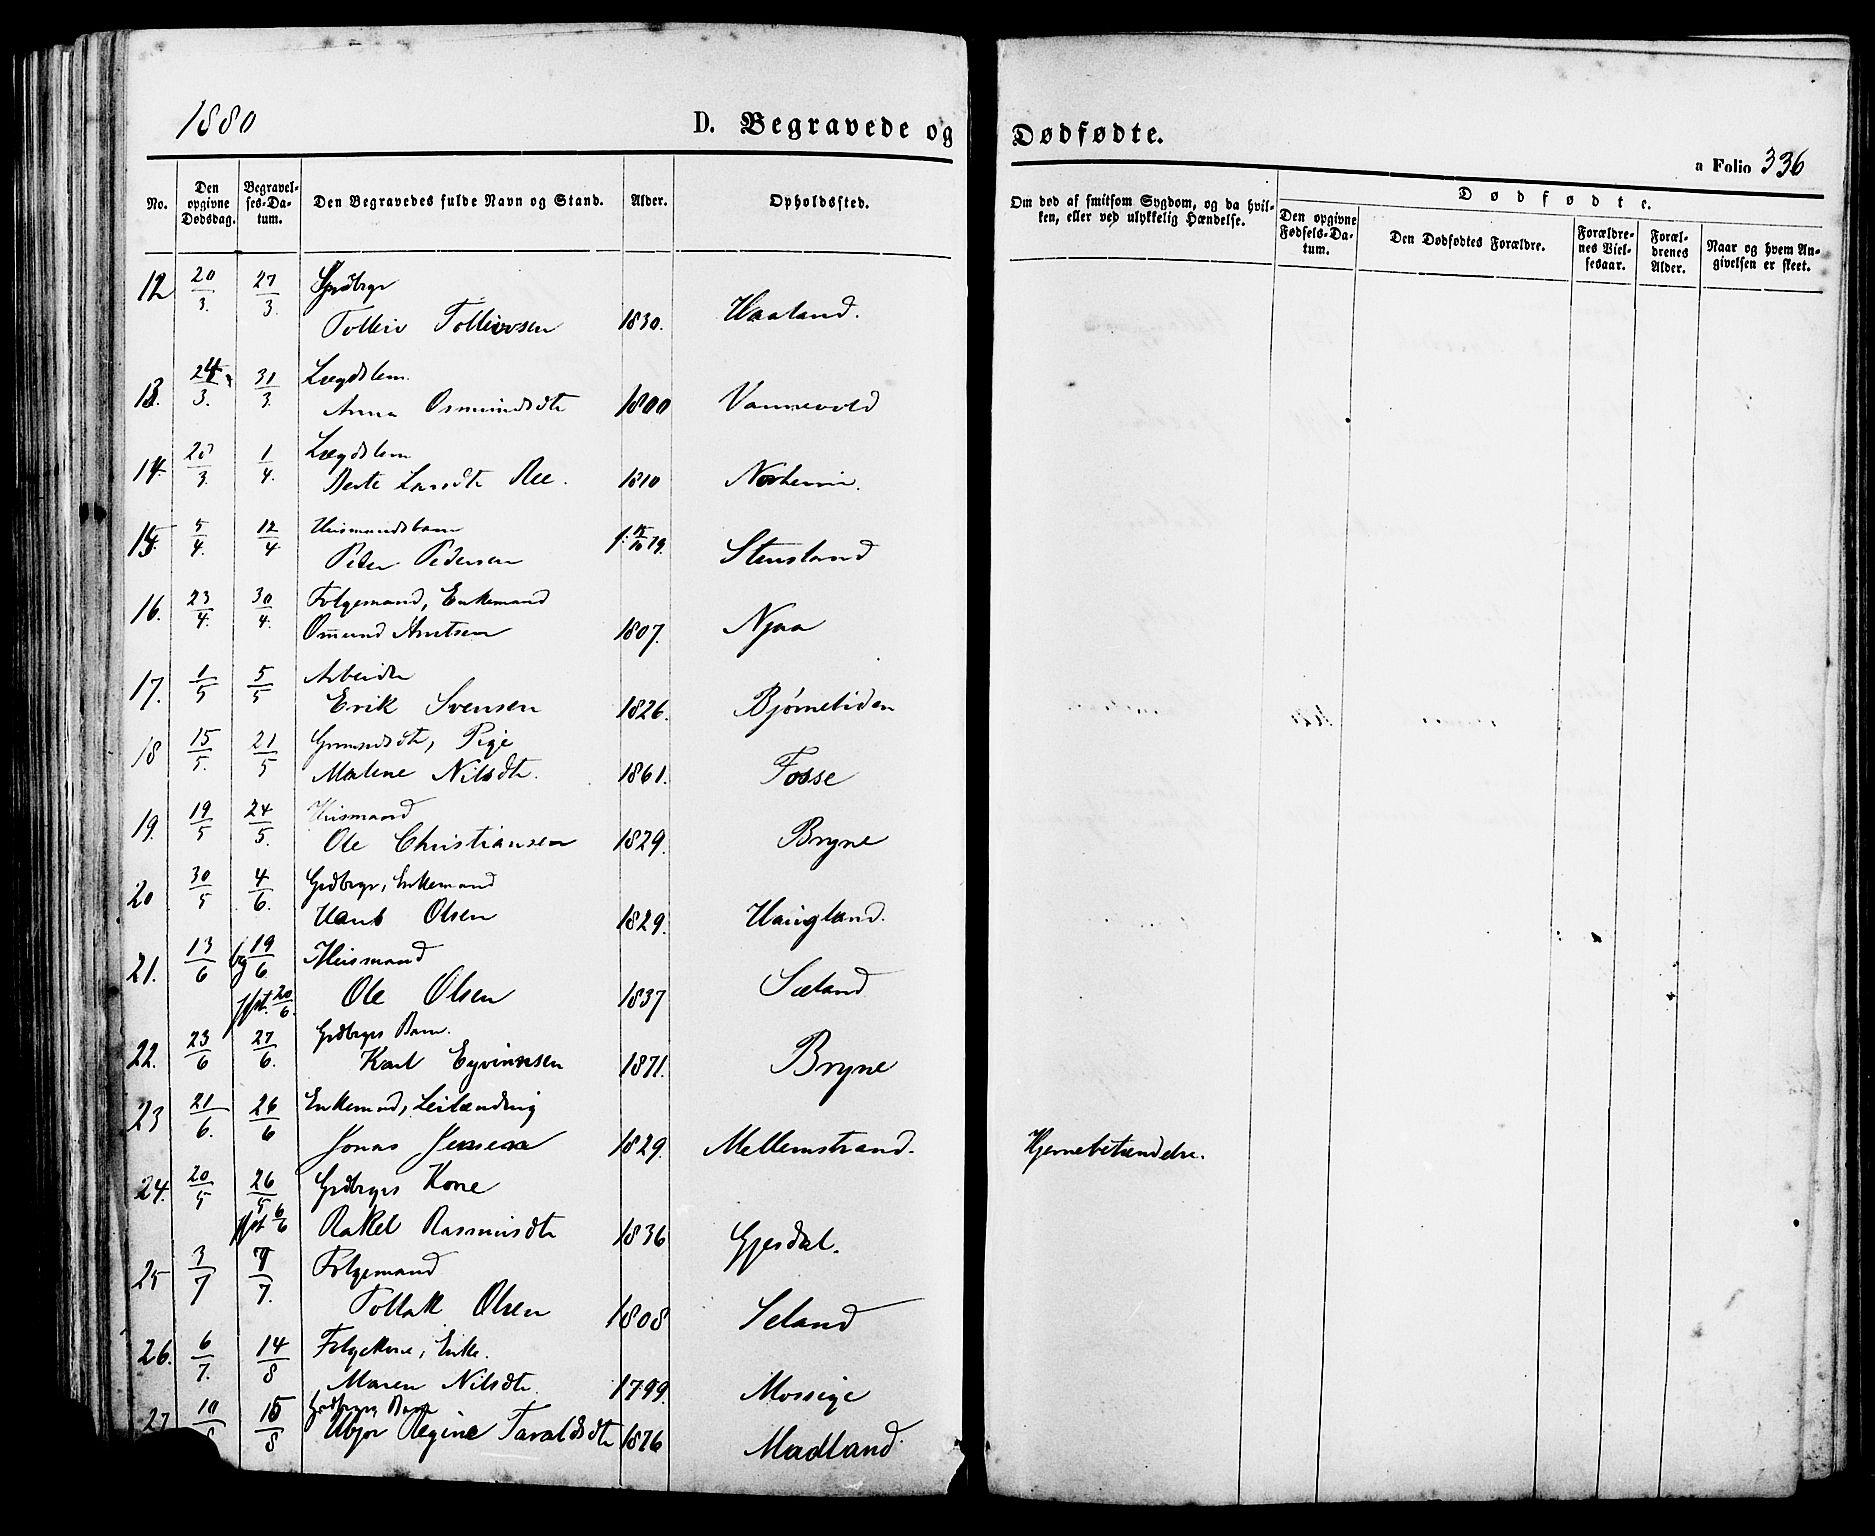 1880
D. Begravede og Dødfødte.
a Folio 336
No.
Den opgivne Dødsdag.
Begravelses-Datum.
Den Begravedes fulde Navn og Stand.
Alder.
Opholdssted.
Om død af smitsom Sygdom, og da hvilken, eller ved ulykkelig Hændelse.
Dødfødte.
Den opgivne Fødsels-Datum.
Den Dødfødtes Forældre.
Forældrenes Vielsesaar.
Forældrenes Alder.
Naar og hvem Angivelsen er skeet.
12 20/3. 27/3. Grdbrgr
Tolleiv Tolleivsen 1830. Haaland.
13. 24/3. 31/3. Lægdslem.
Anna Osmundsdtr 1800 Vannevold
14. /3. 1/4. Lægdslem
Berte Larsdtr Ree. 1810 Norheim.
15. 5/4. 12/4 Huusmandsbarn
Peder Pedersen 79. Stensland
16. 23/4. 30/4. Folgemand, Enkemand
Omund Arntsen 1807. Njaa
17. 1/5 5/5 Arbeider
Erik Svensen 1826. Bjørneliden
18 15/5. 21/5 Grmandsdtr, Pige
Malene Nilsdtr. 1861. Fosse
19. 19/5 24/5. Huusmand
Ole Christiansen 1829. Bryne
20 30/5 4/6. Grdbrgr, Enkemand
Hans Olsen 1829. Haugland.
21. 13/6 bg 19/6 Huusmand
jfst. 20/6. Ole Olsen 1837 Sæland
22. 23/6 27/6. Grdbrgrs Barn.
Karl Eyvinnsen 1871. Bryne
23 21/6. 26/6 Enkemand, Leilænding
Jonas Jensen 1829. Mellemstrand. Hjernebetændelse.
24. 20/5 26/5 Grdbrgrs Kone
jfst 6/6 Rakel Rasmusdtr 1836 Gjesdal.
25 3/7 7/7. Folgemand
Tollak Olsen 1808 Seland
26. 6/7. 14/8 Folgekone, Enke.
Maren Nilsdtr. 1799. Mossige
27 10/8 15/8 Grdbrgrs Barn
Ubjør Regine Taraldsdtr 1876 Madland.